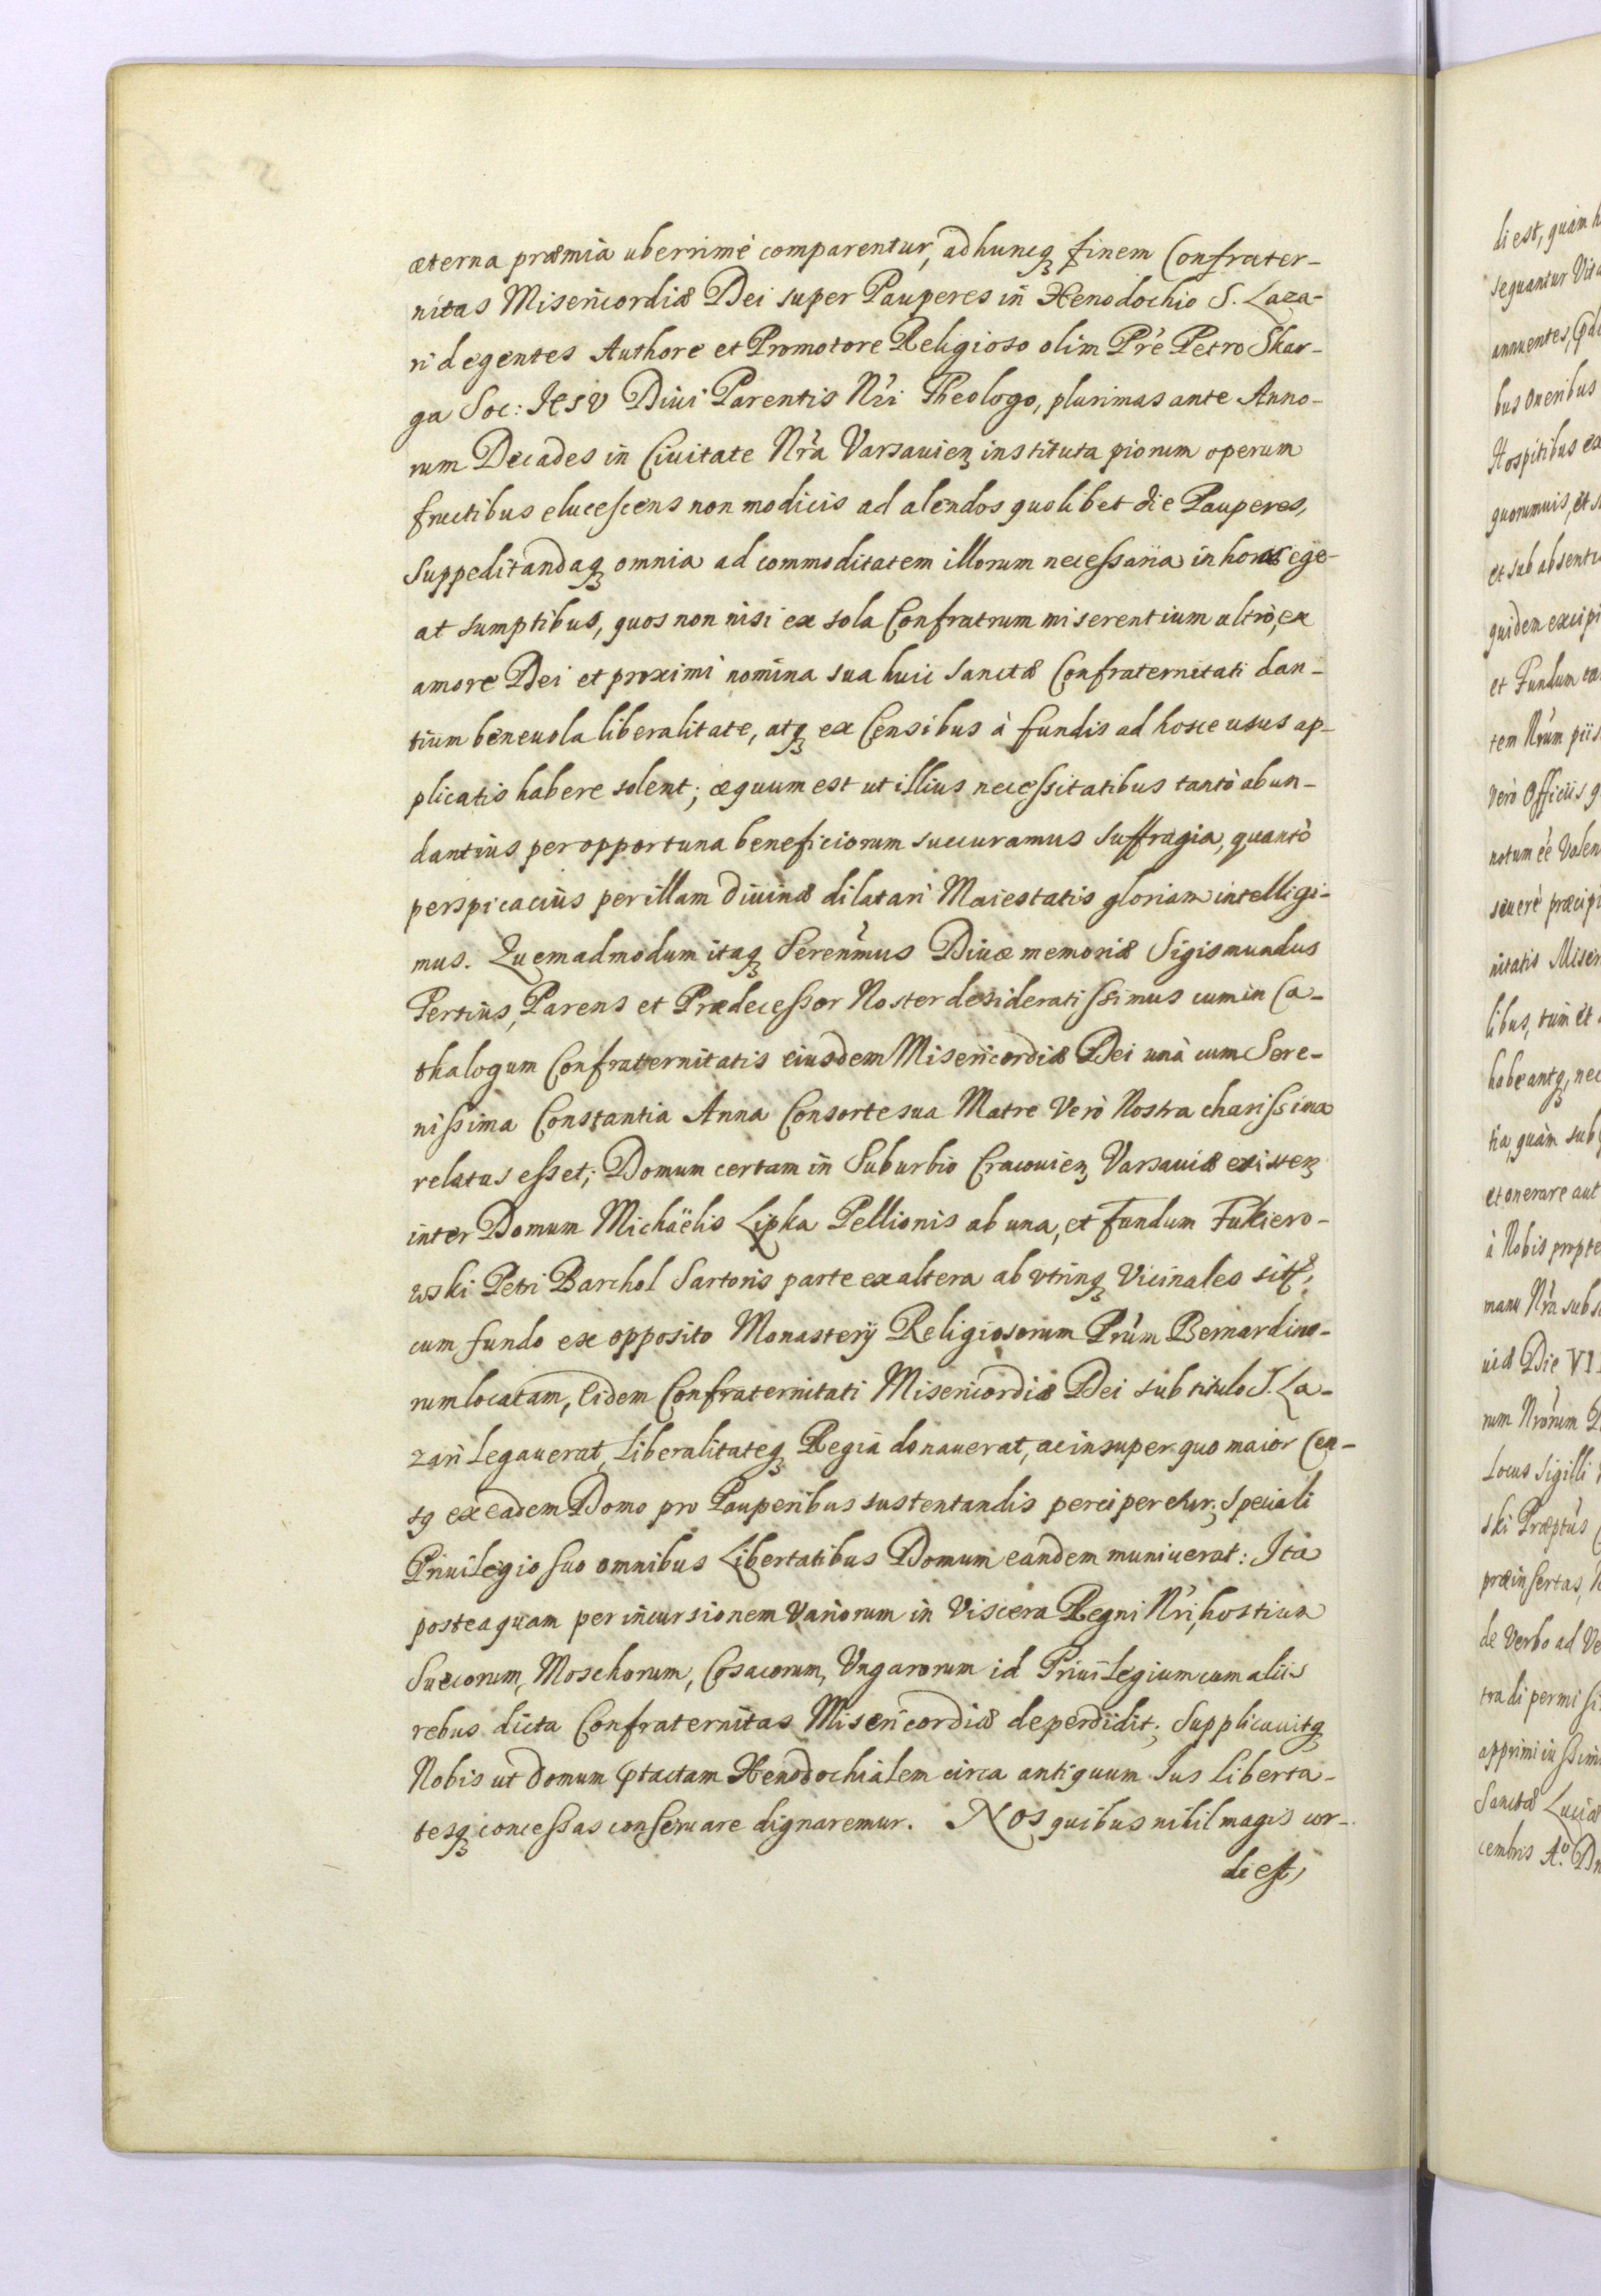 æterna præmia uberrimè comparentur, ad huncq finem Confrater-
nitas Misericordiæ Dei super Pauperes in Xenodochio S. Laza-
ri degentes Authore et Promotore Religioso olim Prè Petro Skar-
ga Soc: Jesv Diui Parentis Nri Theologo, plurimas ante Anno-
rum Decades in Ciuitate Nrà Varsauien instituta piorum operum
fructibus elucescens non modicis ad alendos quolibet die Pauperes,
Suppeditandaq omnia ad commoditatem illorum necessaria in horas ege-
at sumptibus, quos non nisi ex sola Confratrum miserentium ultrò, ex
amore Dei et proximi nomina sua huic sanctæ Confraternitati dan-
tium beneuola liberalitate, atq ex Censibus à fundis ad hosce usus ap-
plicatis habere solent; æquum est ut illius necessitatibus tantò abun-
dantius per opportuna beneficiorum succuramus suffragia, quantò
perspicacius per illam diuinæ dilatari Maiestatis gloriam intelligi-
mus. Quemadmodum itaq Serenmus Diuæ memoriæ Sigismundus
Tertius, Parens et Prædecessor Noster desideratissimus cum in Ca-
thalogum Confratternitatis eiusdem Misericordiæ Dei unà cum Sere-
nissima Constantia Anna Consorte sua Matre Verò Nostra charissima
relatus esset; Domum certam in Suburbio Cracouien Varsauiæ existen
inter Domum Michaëlis Lipka Pellionis ab una, et fundum Fukiero-
wski Petri Barchol Sartoris parte ex altera ab vtrinq Vicinales
cum fundo ex opposito Monasterÿ Religiosorum Prum Bernardino-
rum locatam, Eidem Confraternitati Misericordiæ Dei sub titulo S. La-
zari Legauerat, Liberalitateq Regia donauerat, ac insuper quo maior Cen-
sq ex eadem Domo pro Pauperibus sustentandis perciperetur; Speciali
Priuilegio suo omnibus Libertatibus Domum eandem muniuerat: Ita
postea quam per incursionem Variorum in Viscera Regni Nri, hostium
Suecorum, Moschorum, Cosacorum, Vngarorum id Priuilegium cum aliis
rebus dicta Confraternitas Misericordiæ deperdidit; Supplicauitq
Nobis ut domum ptactam Xenodochialem circa antiquum Ius Liberta-
tesq concessas conseruare dignaremur. Nos quibus nihil magis cor-
di est,
di est, quàm
sequantur
annuentes,
bus Oneribus
Hospitibus
quorumuis, et
et sub absentia
quidem
et Fundum
tem Nrum piis
Verò Officiis
notum èe
seuerè
nitatis
libus, tum et
habeantq, nec
tia, quàm sub
et onerare aut
à Nobis
manu Nra
uiæ Die VI
rum Nrorum
Locus Sigilli
ski
præinsertas,
de Verbo ad
tradi
apprimi
Sanctæ Luciæ
cembris Ao.